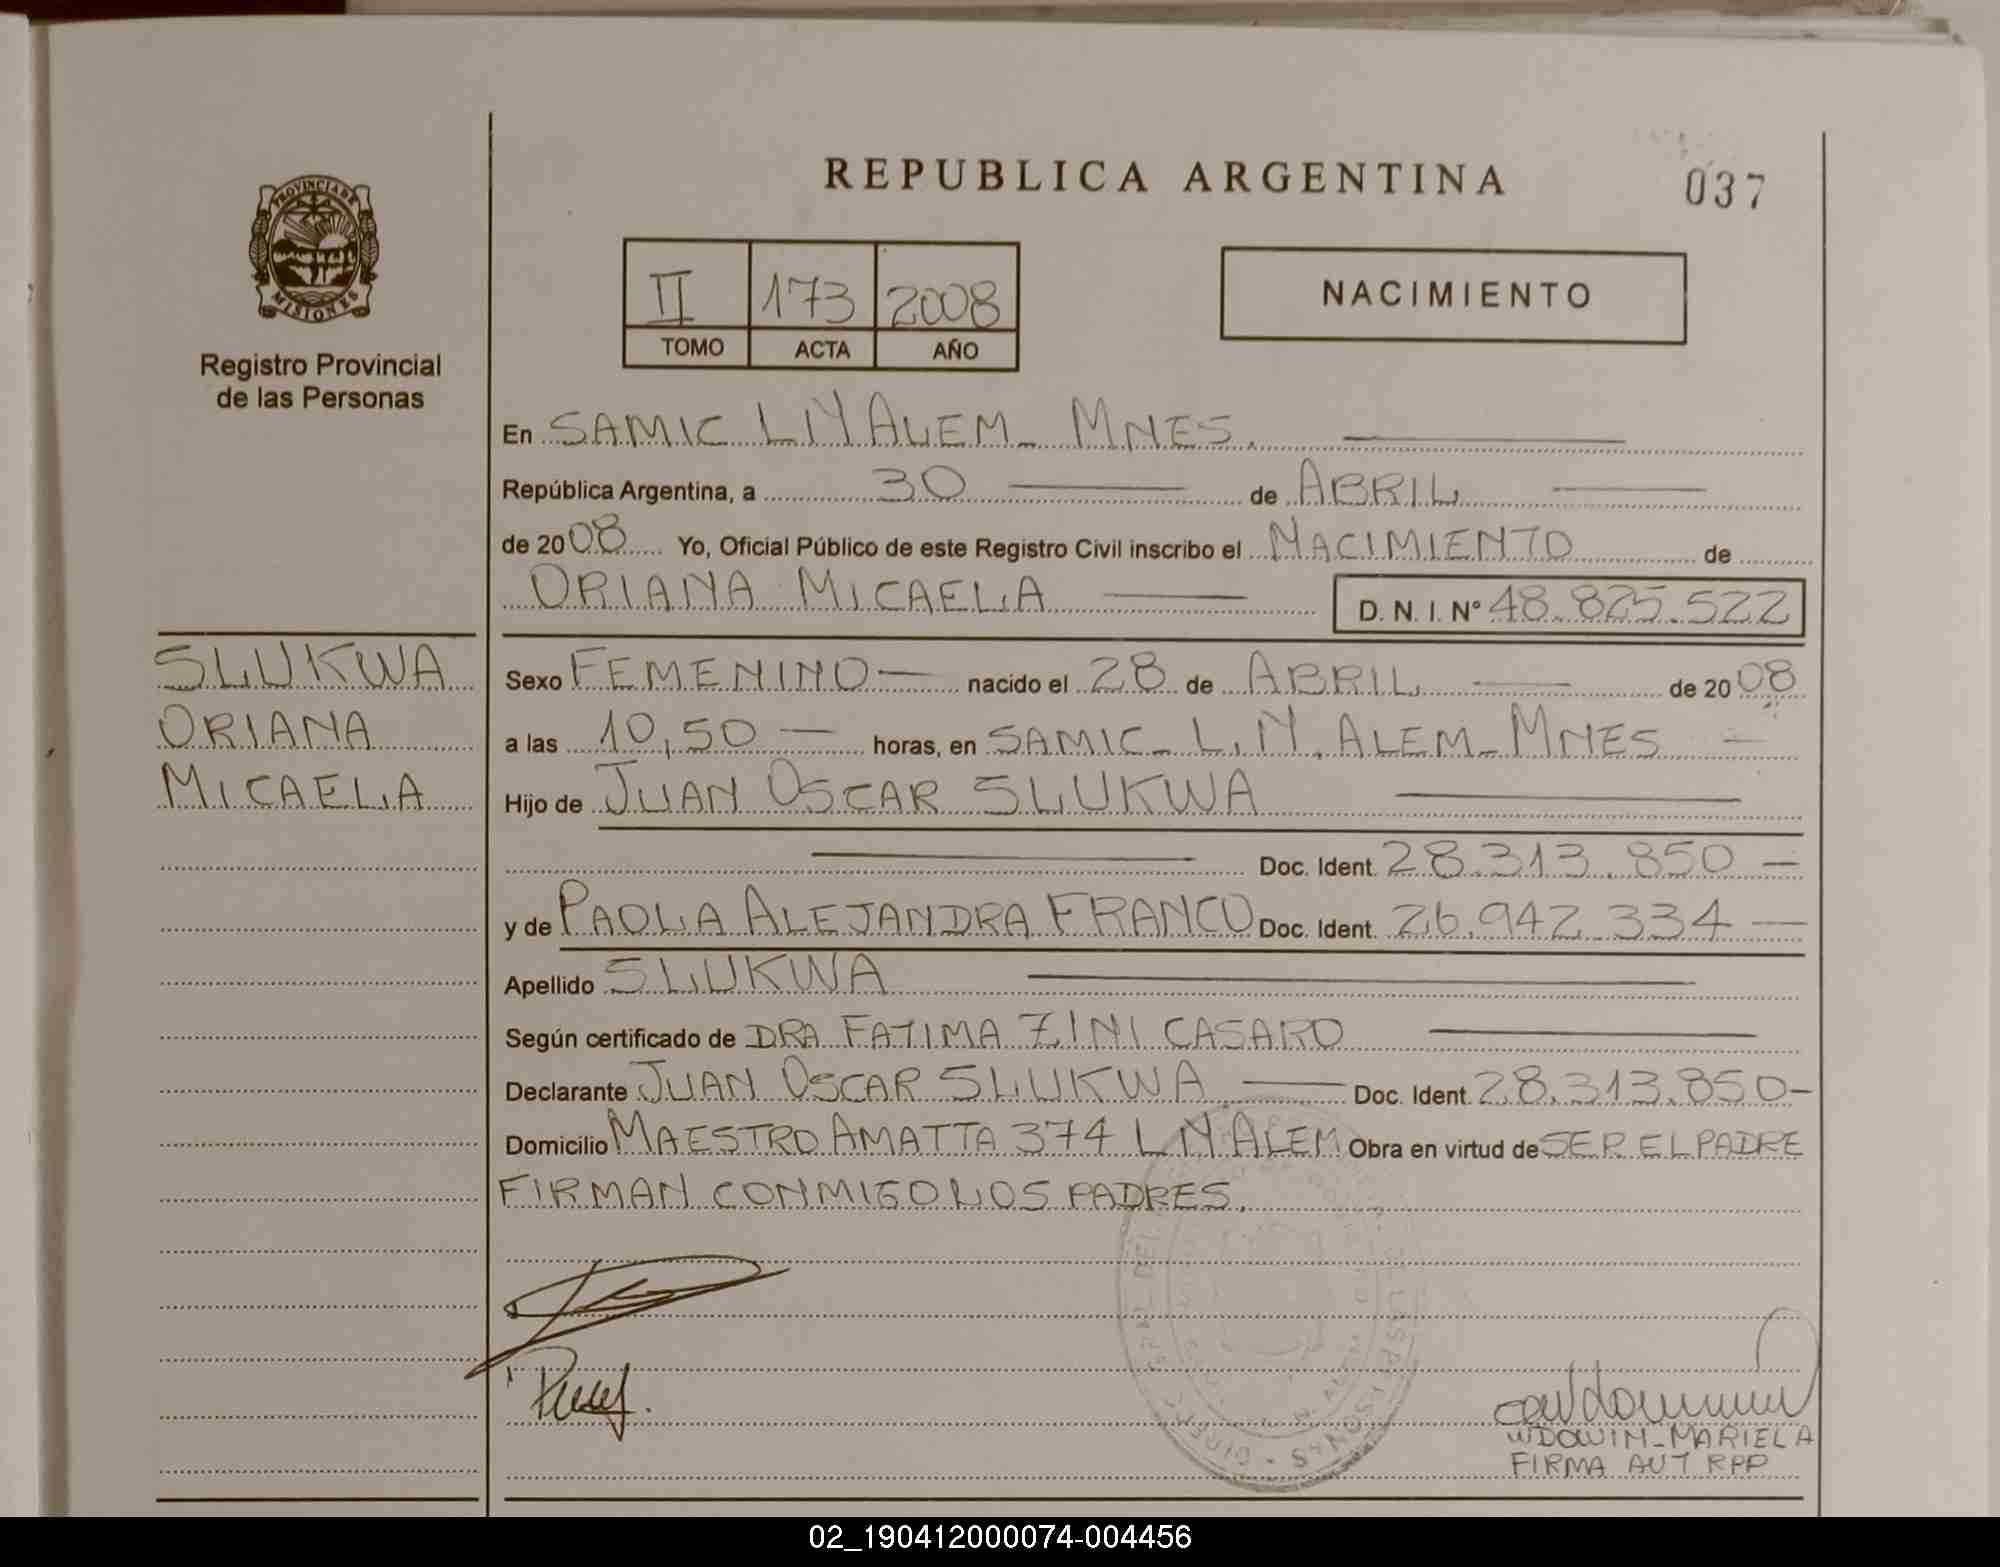 REPUBLICA ARGENTINA
037
PROVINCIA DE
MISIONES
Registro Provincial
de las Personas
II 173 2008
TOMO ACTA AÑO
NACIMIENTO
En SAMIC L N ALEM - MNES.
República Argentina, a 30 de ABRIL
de 2008 Yo, Oficial Público de este Registro Civil inscribo el NACIMIENTO de
ORIANA MICAELA D. N. I. N° 48.825.522
SLUKWA
ORIANA
MICAELA
Sexo FEMENINO — nacido el 28 de ABRIL de 2008
a las 10,50 — horas, en SAMIC - L.N. ALEM - MNES —
Hijo de JUAN OSCAR SLUKWA
Doc. Ident. 28.313.850 —
y de PAOLA ALEJANDRA FRANCO Doc. Ident. 26.942.334 —
Apellido SLUKWA
Según certificado de DRA FATIMA ZINI CASARO
Declarante JUAN OSCAR SLUKWA — Doc. Ident. 28.313.850 -
Domicilio MAESTRO AMATTA 374 L N ALEM Obra en virtud de SER EL PADRE
FIRMAN CONMIGO LOS PADRES.
WDOWIN - MARIELA
FIRMA AUT RPP
02_190412000074-004456